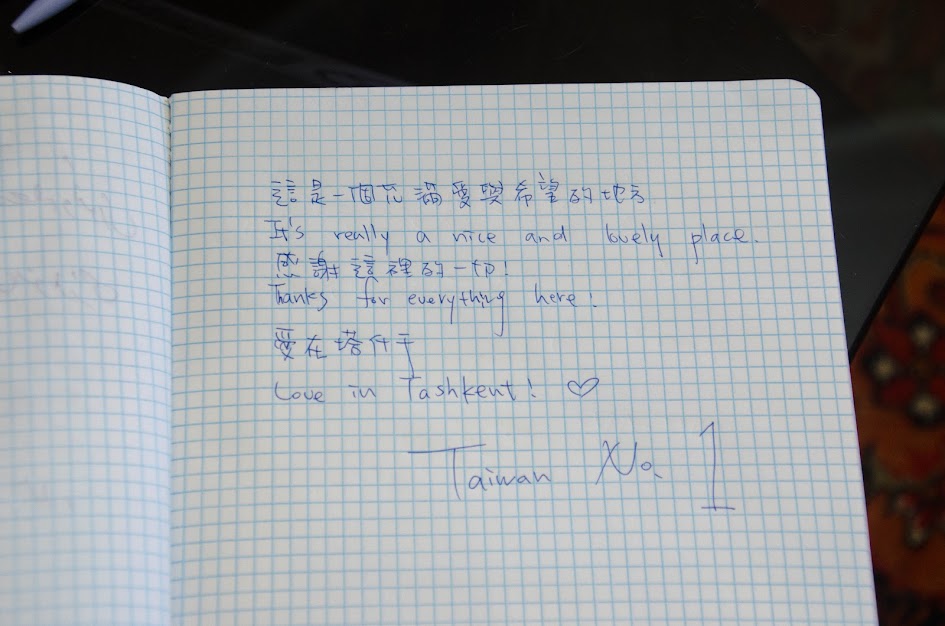 這是一個充滿愛與希望的地方
It's really a nice and lovely place.
感謝這裡的一切!
Thanks for everything here!
愛在塔什干
Love in Tashkent! ♡
Taiwan No. 1